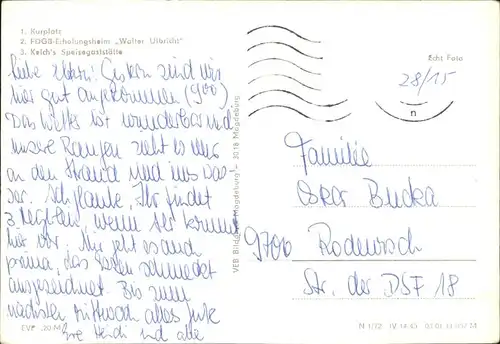 1. Kurplatz
2. FDGB-Erholungsheim „Walter Ulbricht"
3. Kelch's Speisegaststätte
Liebe Eltern! Gestern sind wir
hier gut angekommen (900)
Das Wetter ist wunderbar und
unsere Rangen zieht es
an den Strand und ins Was
ser. Ich glaube, Ihr findet
3 Neger, wenn Ihr kommt
hier vor. Mir geht es auch
prima, das Essen schmeckt
ausgezeichnet. Bis zum
nächsten Mittwoch alles Gute
Eure Heidi und alle
EVP -,20 M
VEB Bild Magdeburg - 3018 Magdeburg
Echt Foto
28/15
n
Familie
Oskar Bucka
9700 Rodewisch
Str. der DSF 18
N 1/72 IV-14-45